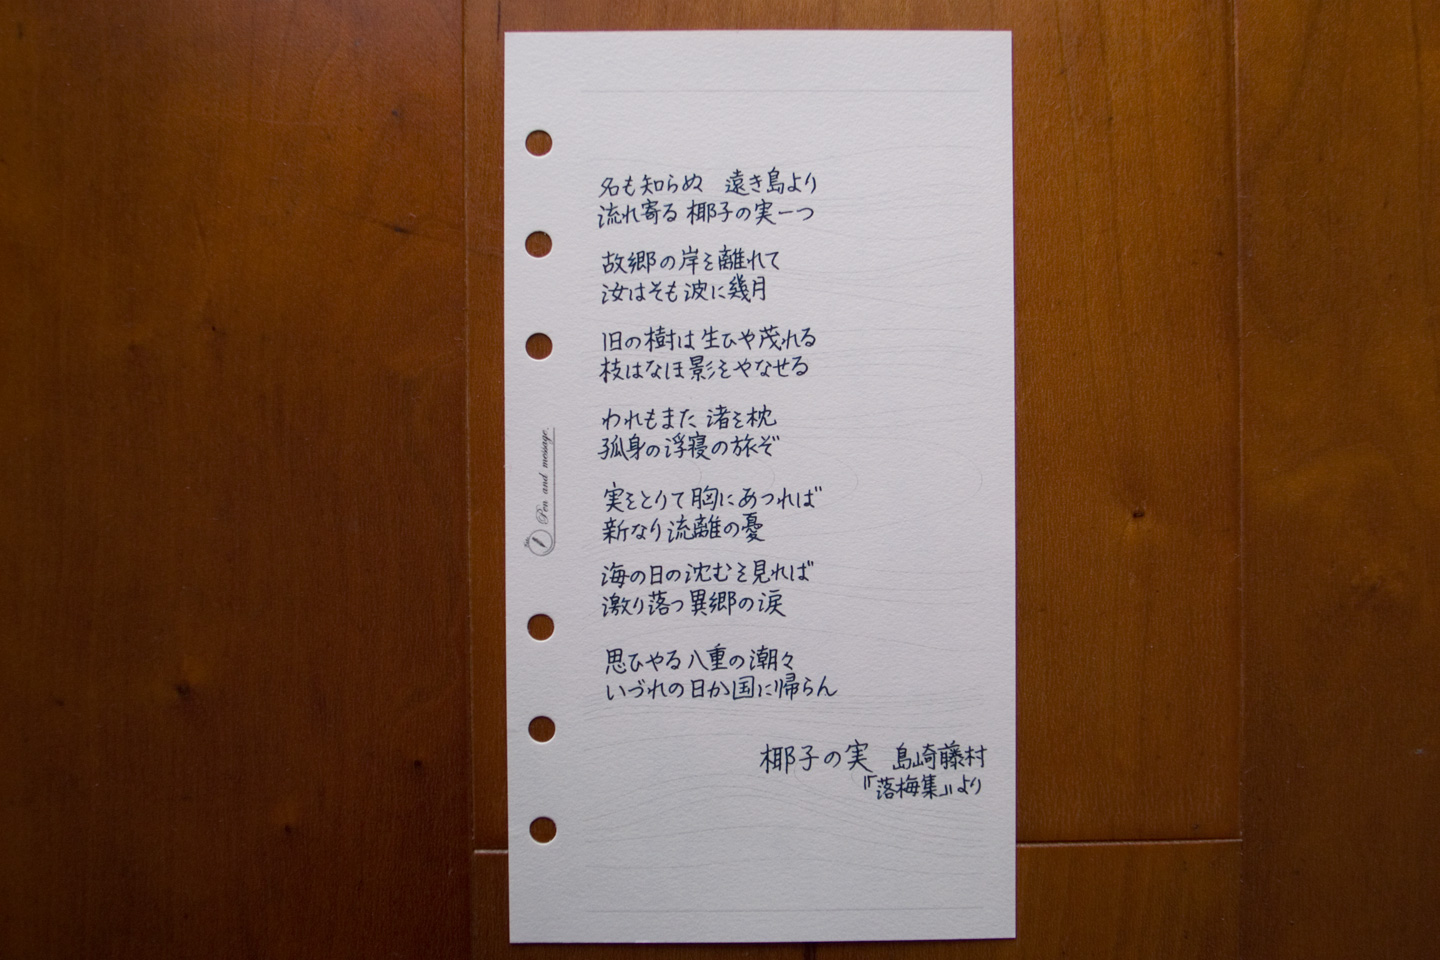 名も知らぬ　遠き島より
流れ寄る 椰子の実一つ
故郷の岸を離れて
汝はそも波に幾月
旧の樹は 生ひや茂れる
枝はなほ影をやなせる
われもまた 渚を枕
孤身の浮寝の旅ぞ
実をとりて 胸にあつれば
新なり 流離の憂
海の日の沈むを見れば
激り落つ 異郷の涙
思ひやる 八重の潮々
いづれの日か国に帰らん
椰子の実　島崎藤村
『落梅集』より
Pen and message.